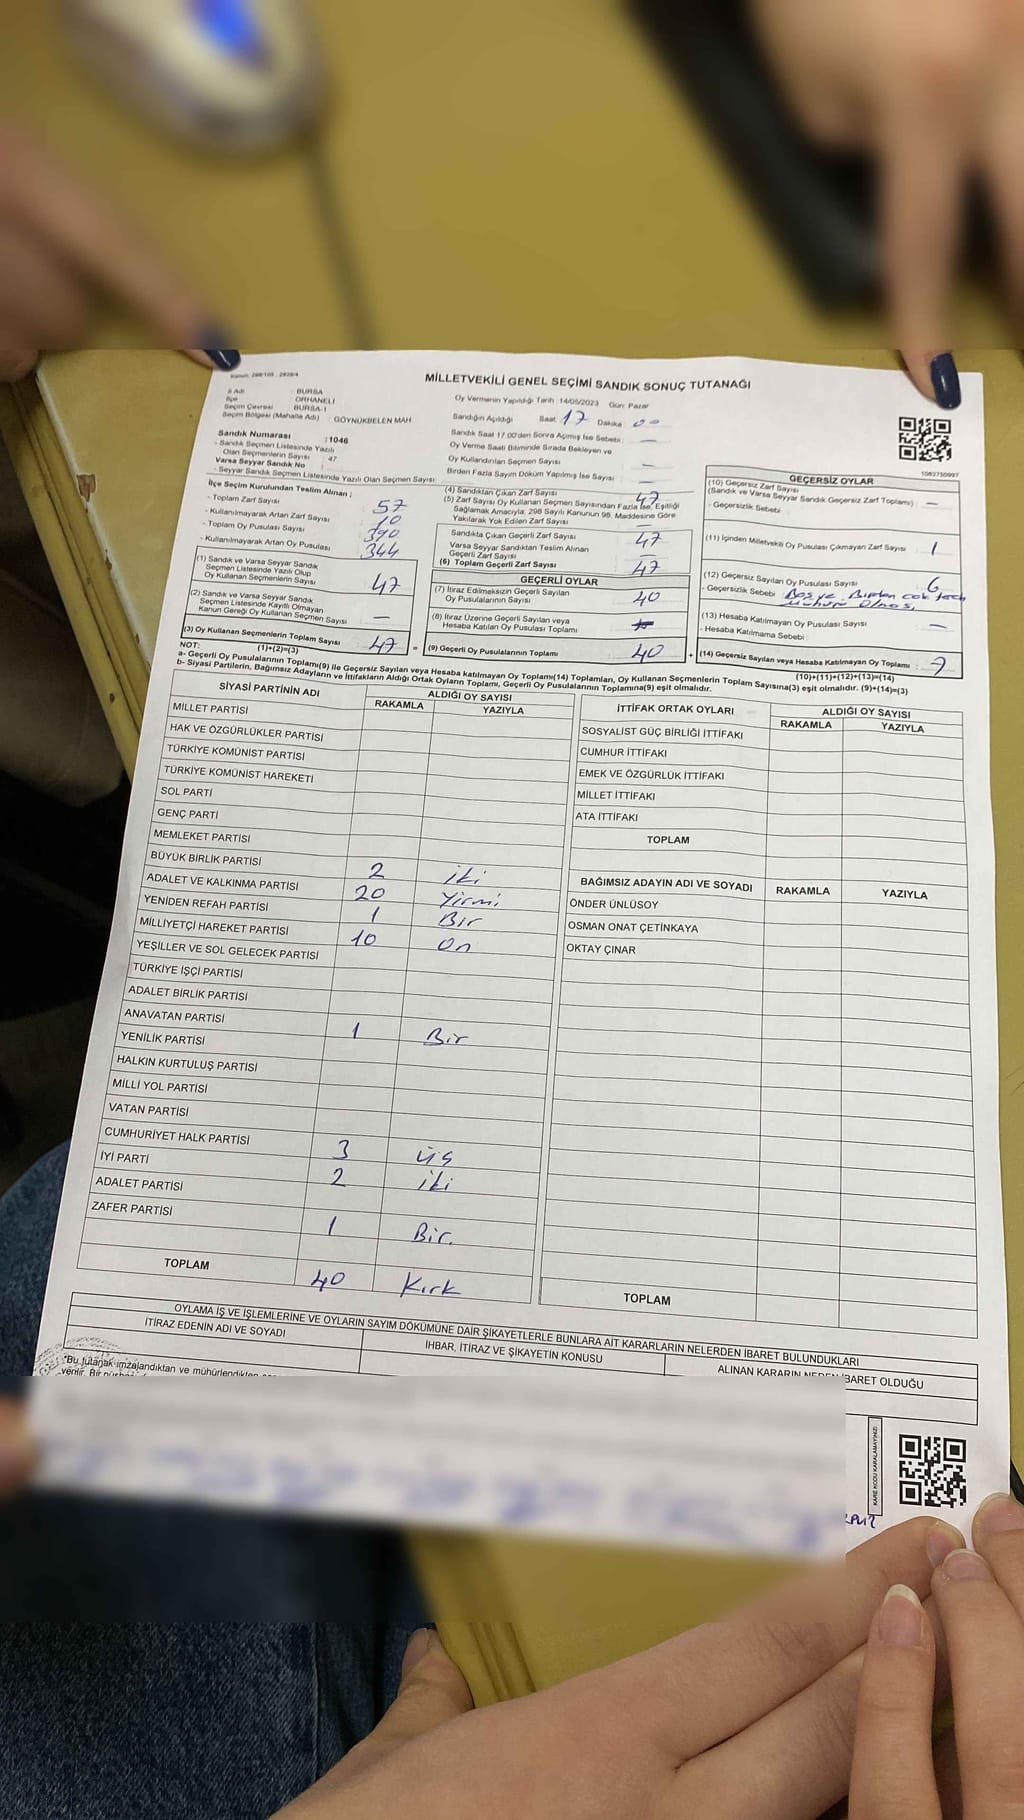 Kanun: 298/105 - 2839/4
MİLLETVEKİLİ GENEL SEÇİMİ SANDIK SONUÇ TUTANAĞI
İl Adı : BURSA
İlçe : ORHANELİ
Seçim Çevresi : BURSA-1
Seçim Bölgesi (Mahalle Adı) : GÖYNÜKBELEN MAH
Sandık Numarası : 1046
- Sandık Seçmen Listesinde Yazılı
Olan Seçmenlerin Sayısı : 47
Varsa Seyyar Sandık No :
- Seyyar Sandık Seçmen Listesinde Yazılı Olan Seçmen Sayısı:
Oy Vermenin Yapıldığı Tarih : 14/05/2023 Gün: Pazar
Sandığın Açıldığı Saat: 17 Dakika : 00
Sandık Saat 17:00'den Sonra Açılmış İse Sebebi : —
Oy Verme Saati Bitiminde Sırada Bekleyen ve
Oy Kullandırılan Seçmen Sayısı : —
Birden Fazla Sayım Döküm Yapılmış İse Sayısı : —
1083750997
İlçe Seçim Kurulundan Teslim Alınan ;
- Toplam Zarf Sayısı : 57
- Kullanılmayarak Artan Zarf Sayısı : 10
- Toplam Oy Pusulası Sayısı : 390
- Kullanılmayarak Artan Oy Pusulası : 344
(1) Sandık ve Varsa Seyyar Sandık
Seçmen Listesinde Yazılı Olup
Oy Kullanan Seçmenlerin Sayısı : 47
(2) Sandık ve Varsa Seyyar Sandık
Seçmen Listesinde Kayıtlı Olmayan
Kanun Gereği Oy Kullanan Seçmen Sayısı : —
(3) Oy Kullanan Seçmenlerin Toplam Sayısı : 47 =
(1)+(2)=(3)
(4) Sandıktan Çıkan Zarf Sayısı : 47
(5) Zarf Sayısı Oy Kullanan Seçmen Sayısından Fazla İse, Eşitliği
Sağlamak Amacıyla, 298 Sayılı Kanunun 98. Maddesine Göre
Yakılarak Yok Edilen Zarf Sayısı : —
Sandıkta Çıkan Geçerli Zarf Sayısı : 47
Varsa Seyyar Sandıktan Teslim Alınan
Geçerli Zarf Sayısı : —
(6) Toplam Geçerli Zarf Sayısı : 47
GEÇERLİ OYLAR
(7) İtiraz Edilmeksizin Geçerli Sayılan
Oy Pusulalarının Sayısı : 40
(8) İtiraz Üzerine Geçerli Sayılan veya
Hesaba Katılan Oy Pusulası Toplamı :
(9) Geçerli Oy Pusulalarının Toplamı : 40 +
GEÇERSİZ OYLAR
(10) Geçersiz Zarf Sayısı
(Sandık ve Varsa Seyyar Sandık Geçersiz Zarf Toplamı) : —
- Geçersizlik Sebebi :
(11) İçinden Milletvekili Oy Pusulası Çıkmayan Zarf Sayısı : 1
(12) Geçersiz Sayılan Oy Pusulası Sayısı : 6
- Geçersizlik Sebebi : Boş ve Birden çok
(13) Hesaba Katılmayan Oy Pusulası Sayısı : —
- Hesaba Katılmama Sebebi :
(14) Geçersiz Sayılan veya Hesaba Katılmayan Oy Toplamı : 7
(10)+(11)+(12)+(13)=(14)
NOT:
a- Geçerli Oy Pusulalarının Toplamı(9) ile Geçersiz Sayılan veya Hesaba katılmayan Oy Toplamı(14) Toplamları, Oy Kullanan Seçmenlerin Toplam Sayısına(3) eşit olmalıdır. (9)+(14)=(3)
b- Siyasi Partilerin, Bağımsız Adayların ve İttifakların Aldığı Ortak Oyların Toplamı, Geçerli Oy Pusulalarının Toplamına(9) eşit olmalıdır.
SİYASİ PARTİNİN ADI ALDIĞI OY SAYISI
RAKAMLA YAZIYLA
MİLLET PARTİSİ
HAK VE ÖZGÜRLÜKLER PARTİSİ
TÜRKİYE KOMÜNİST PARTİSİ
TÜRKİYE KOMÜNİST HAREKETİ
SOL PARTİ
GENÇ PARTİ
MEMLEKET PARTİSİ
BÜYÜK BİRLİK PARTİSİ 2 iki
ADALET VE KALKINMA PARTİSİ 20 Yirmi
YENİDEN REFAH PARTİSİ 1 Bir
MİLLİYETÇİ HAREKET PARTİSİ 10 On
YEŞİLLER VE SOL GELECEK PARTİSİ
TÜRKİYE İŞÇİ PARTİSİ
ADALET BİRLİK PARTİSİ
ANAVATAN PARTİSİ
YENİLİK PARTİSİ 1 Bir
HALKIN KURTULUŞ PARTİSİ
MİLLİ YOL PARTİSİ
VATAN PARTİSİ
CUMHURİYET HALK PARTİSİ 3 üç
İYİ PARTİ 2 iki
ADALET PARTİSİ
ZAFER PARTİSİ 1 Bir.
TOPLAM 40 Kırk
İTTİFAK ORTAK OYLARI ALDIĞI OY SAYISI
RAKAMLA YAZIYLA
SOSYALİST GÜÇ BİRLİĞİ İTTİFAKI
CUMHUR İTTİFAKI
EMEK VE ÖZGÜRLÜK İTTİFAKI
MİLLET İTTİFAKI
ATA İTTİFAKI
TOPLAM
BAĞIMSIZ ADAYIN ADI VE SOYADI RAKAMLA YAZIYLA
ÖNDER ÜNLÜSOY
OSMAN ONAT ÇETİNKAYA
OKTAY ÇINAR
TOPLAM
OYLAMA İŞ VE İŞLEMLERİNE VE OYLARIN SAYIM DÖKÜMÜNE DAİR ŞİKAYETLERLE BUNLARA AİT KARARLARIN NELERDEN İBARET BULUNDUKLARI
İTİRAZ EDENİN ADI VE SOYADI İHBAR, İTİRAZ VE ŞİKAYETİN KONUSU ALINAN KARARIN NEDEN İBARET OLDUĞU
"Bu tutanak imzalandıktan ve mühürlendikten
KARE KODU KARALAMAYINIZ!